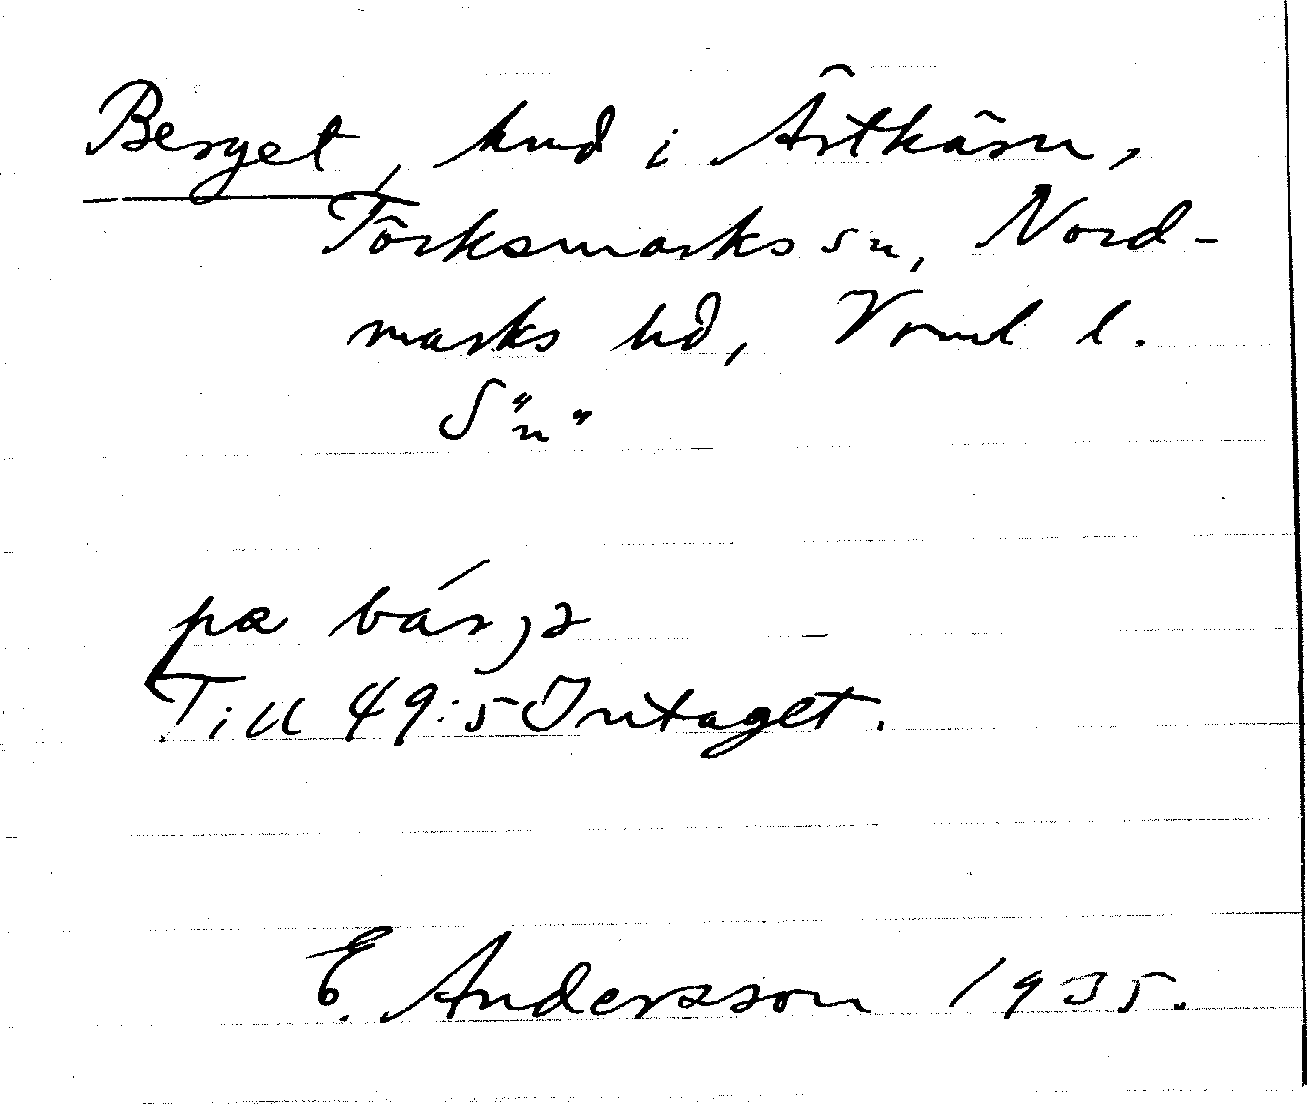 Berget, hmd i Ärtkärn,
Törksmarks sn, Nord-
marks hd, Vrml l.
S "n"
pæ bárjə
Till 49:5 Intaget.
E. Andersson 1935.